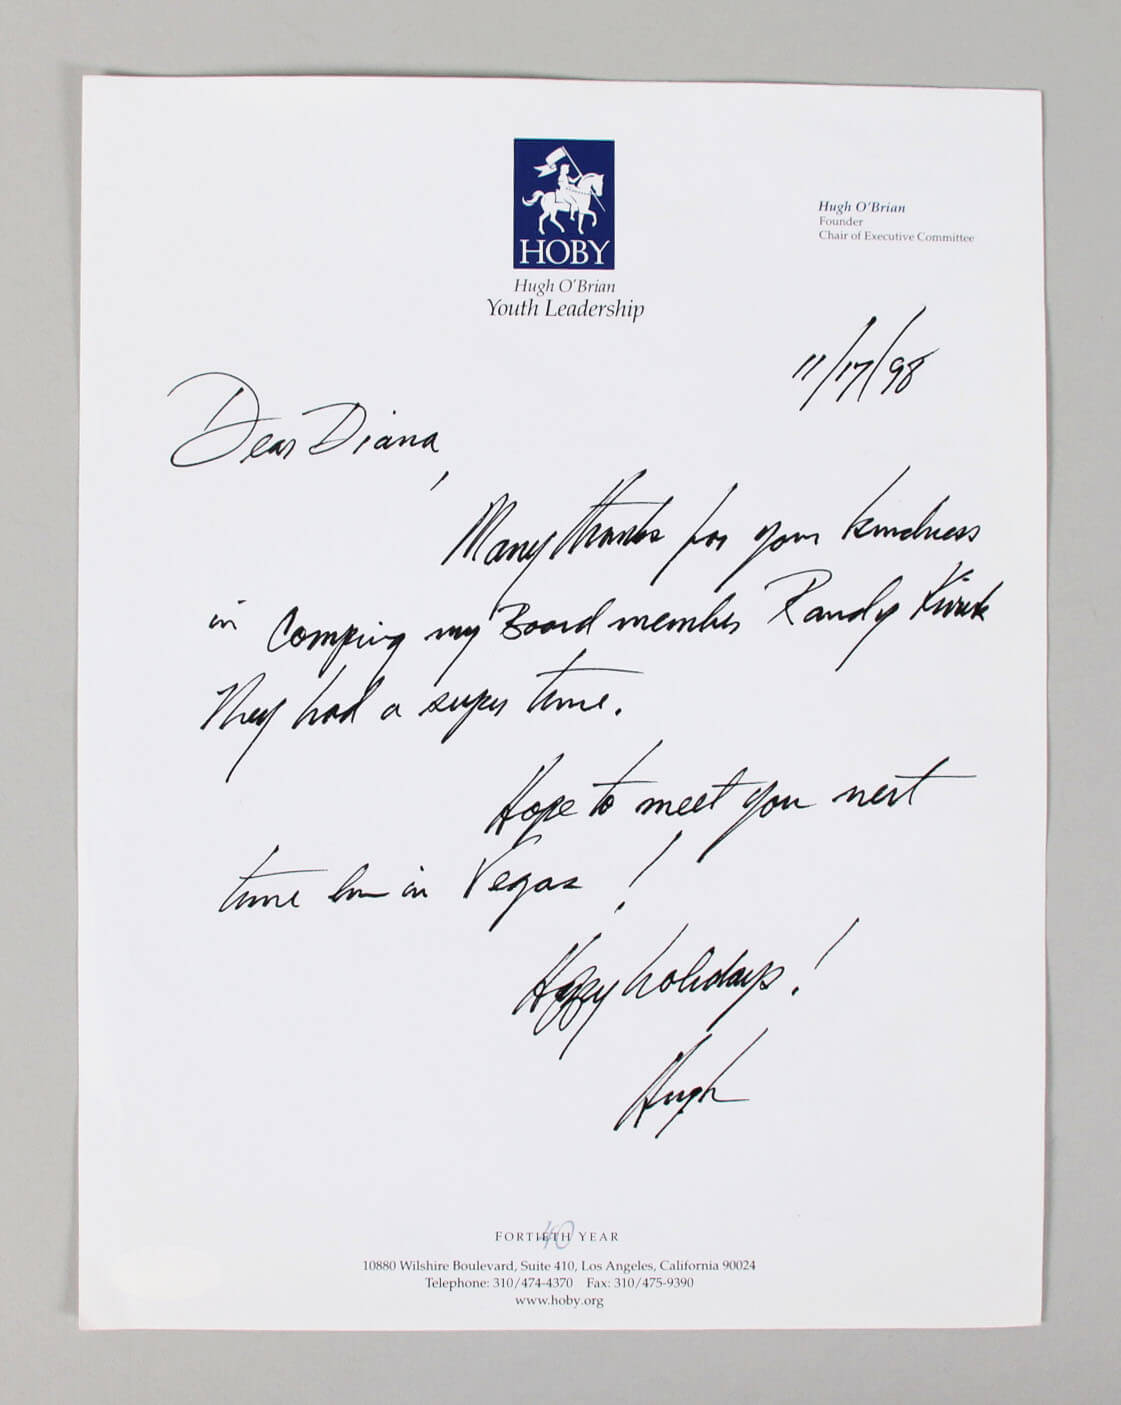 HOBY
Hugh O'Brian
Youth Leadership
Hugh O'Brian
Founder
Chair of Executive Committee
11/17/98
Dear Diana,
Many thanks for your kindness
in Comping my Board member Randy
They had a super time.
Hope to meet you next
time in Vegas!
Happy holidays!
Hugh
40
FORTIETH YEAR
10880 Wilshire Boulevard, Suite 410, Los Angeles, California 90024
Telephone: 310/474-4370 Fax: 310/475-9390
www.hoby.org